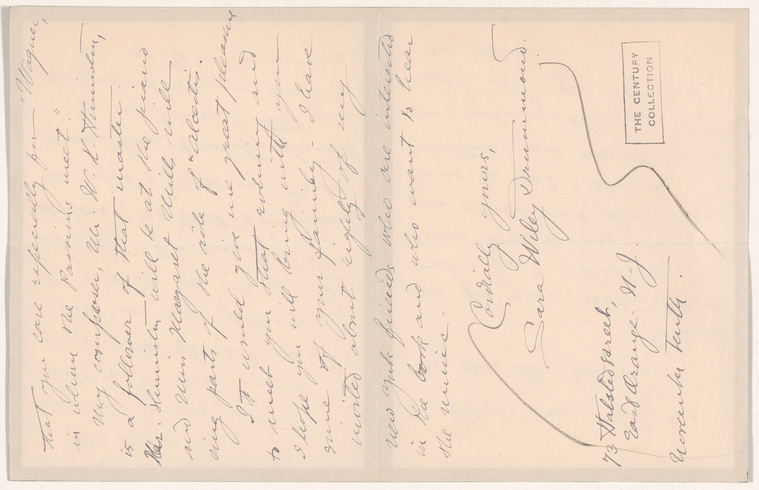 that you care especially for "Wagner,
in whom the Passions meet."
My composer, Mr. W. L. Humiston,
is a follower of that master.
Mr. Humiston will be at the piano
and Miss Margaret will
sing parts of the rôle of Alcestis.
It would give me great pleasure
to meet you that evening and
I hope you will bring with you
some of your family - I have
invited about eighty of my
New York friends who are interested
in the book and who want to hear
the music.
Cordially yours,
Sara Wiley Drummond.
73 Halsted Street,
East Orange. N.J.
November tenth.
THE CENTURY
COLLECTION